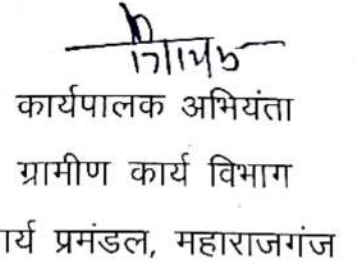 कार्यपालक अभियंता
ग्रामीण कार्य विभाग
र्य प्रमंडल, महाराजगंज